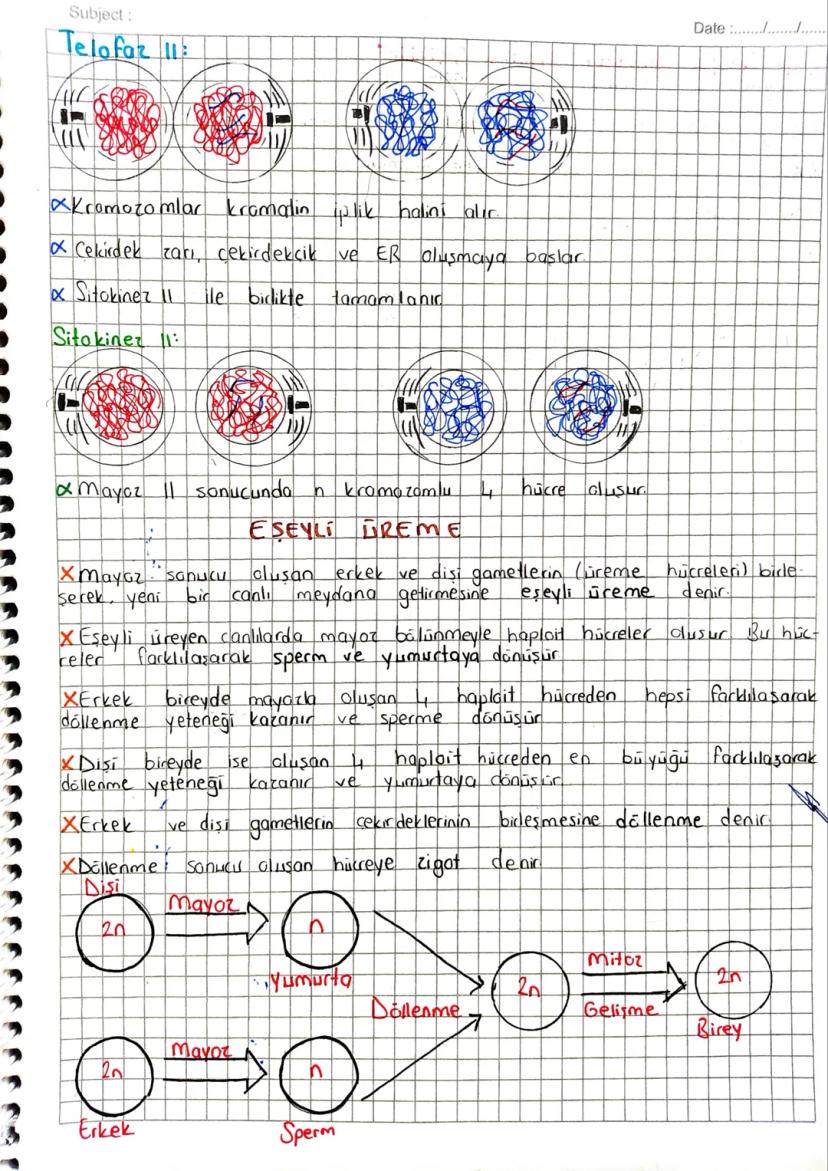 Subject :
Date :....../....../......
Telofaz II:
αKromozomlar kromatin iplik halini alır.
α Çekirdek zarı, çekirdekçik ve ER oluşmaya başlar.
α Sitokinez II ile birlikte tamamlanır.
Sitokinez II:
αMayoz II sonucunda n kromozomlu 4 hücre oluşur.
EŞEYLİ ÜREME
XMayoz sonucu oluşan erkek ve dişi gametlerin (üreme hücreleri) birle-
şerek, yeni bir canlı meydana getirmesine eşeyli üreme denir.
XEşeyli üreyen canlılarda mayoz bölünmeyle haploit hücreler oluşur. Bu hüc-
reler farklılaşarak sperm ve yumurtaya dönüşür
XErkek bireyde mayozla oluşan 4 haploit hücreden hepsi farklılaşarak
döllenme yeteneği kazanır ve sperme dönüşür
XDişi bireyde ise oluşan 4 haploit hücreden en büyüğü farklılaşarak
döllenme yeteneği kazanır ve yumurtaya dönüşür.
XErkek ve dişi gametlerin çekirdeklerinin birleşmesine döllenme denir.
XDöllenme sonucu oluşan hücreye zigot denir.
Dişi
2n
Mayoz
n
Yumurta
Döllenme
2n
Mitoz
Gelişme
2n
Birey
2n
Mayoz
n
Erkek
Sperm